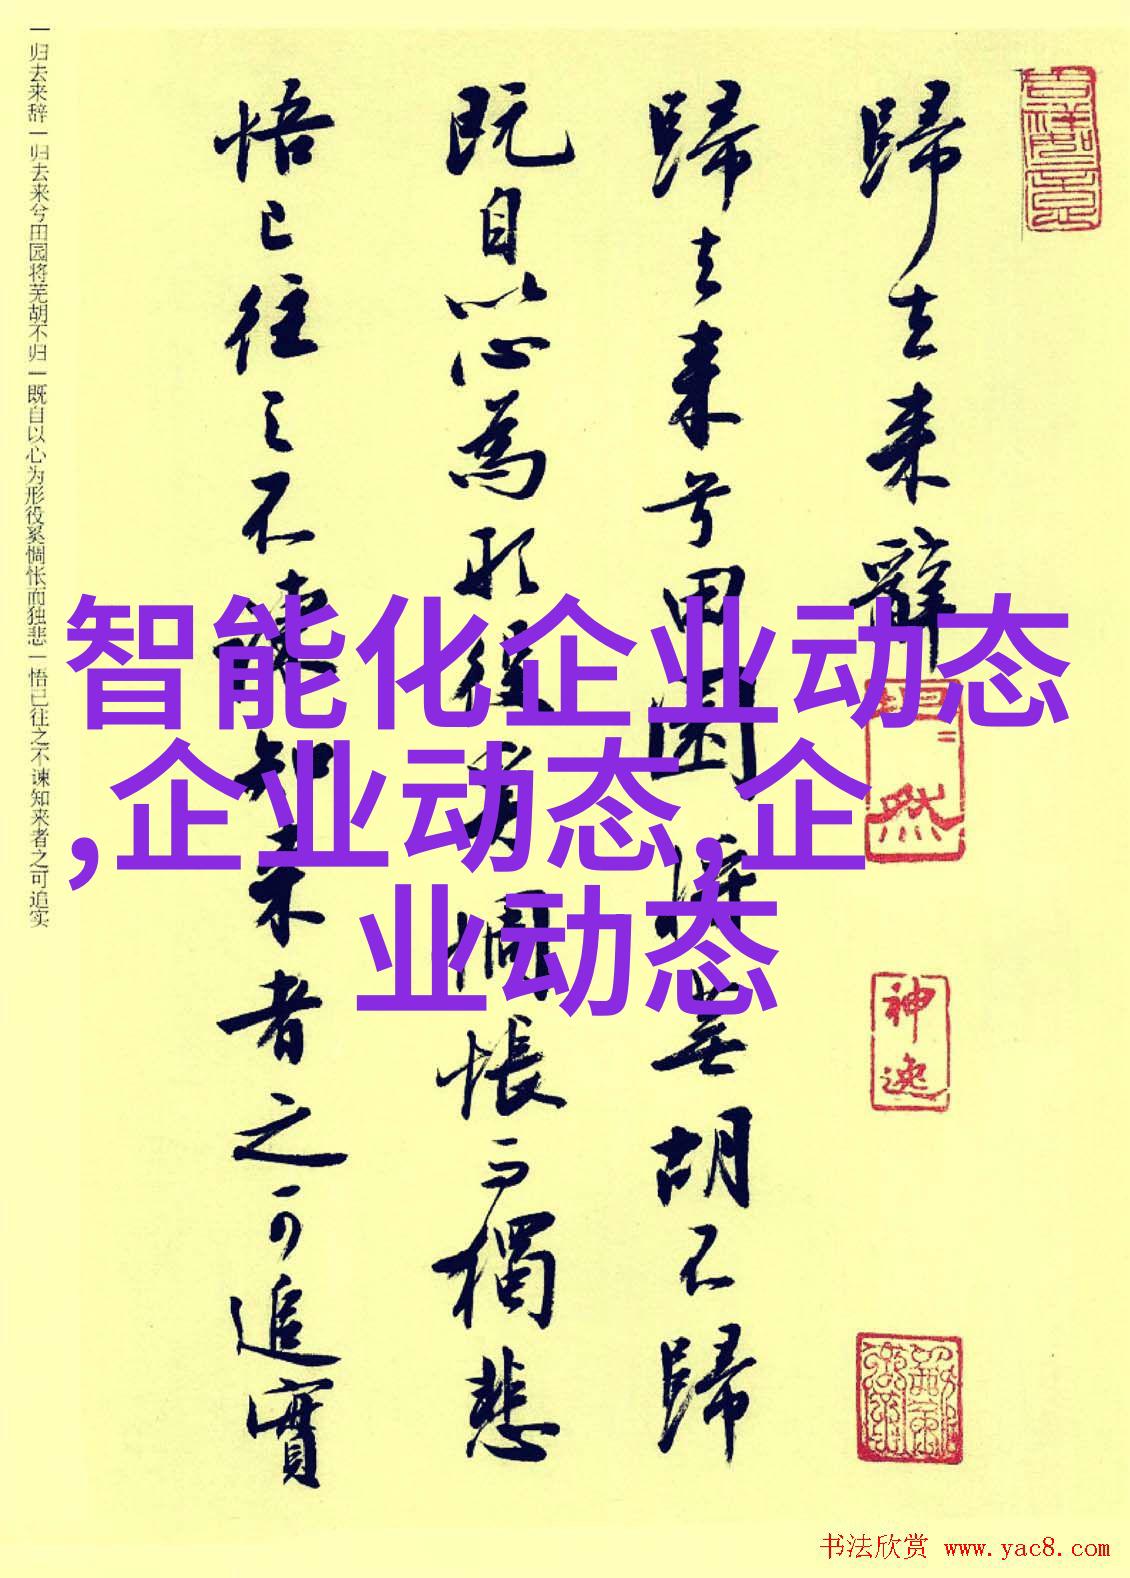 歸去来辭
歸去来兮田園将蕪胡不歸
既自以心為形役奚惆悵而獨悲
悟已往之不諫知来者之可追實
一归去来辞一归去来兮田园将芜胡不归一既自以心为形役奚惆怅而独悲一悟已往之不谏知来者之可追实
智能化企业动态
,企业动态,企
业动态
神逸
书法欣赏 www.yac8.com